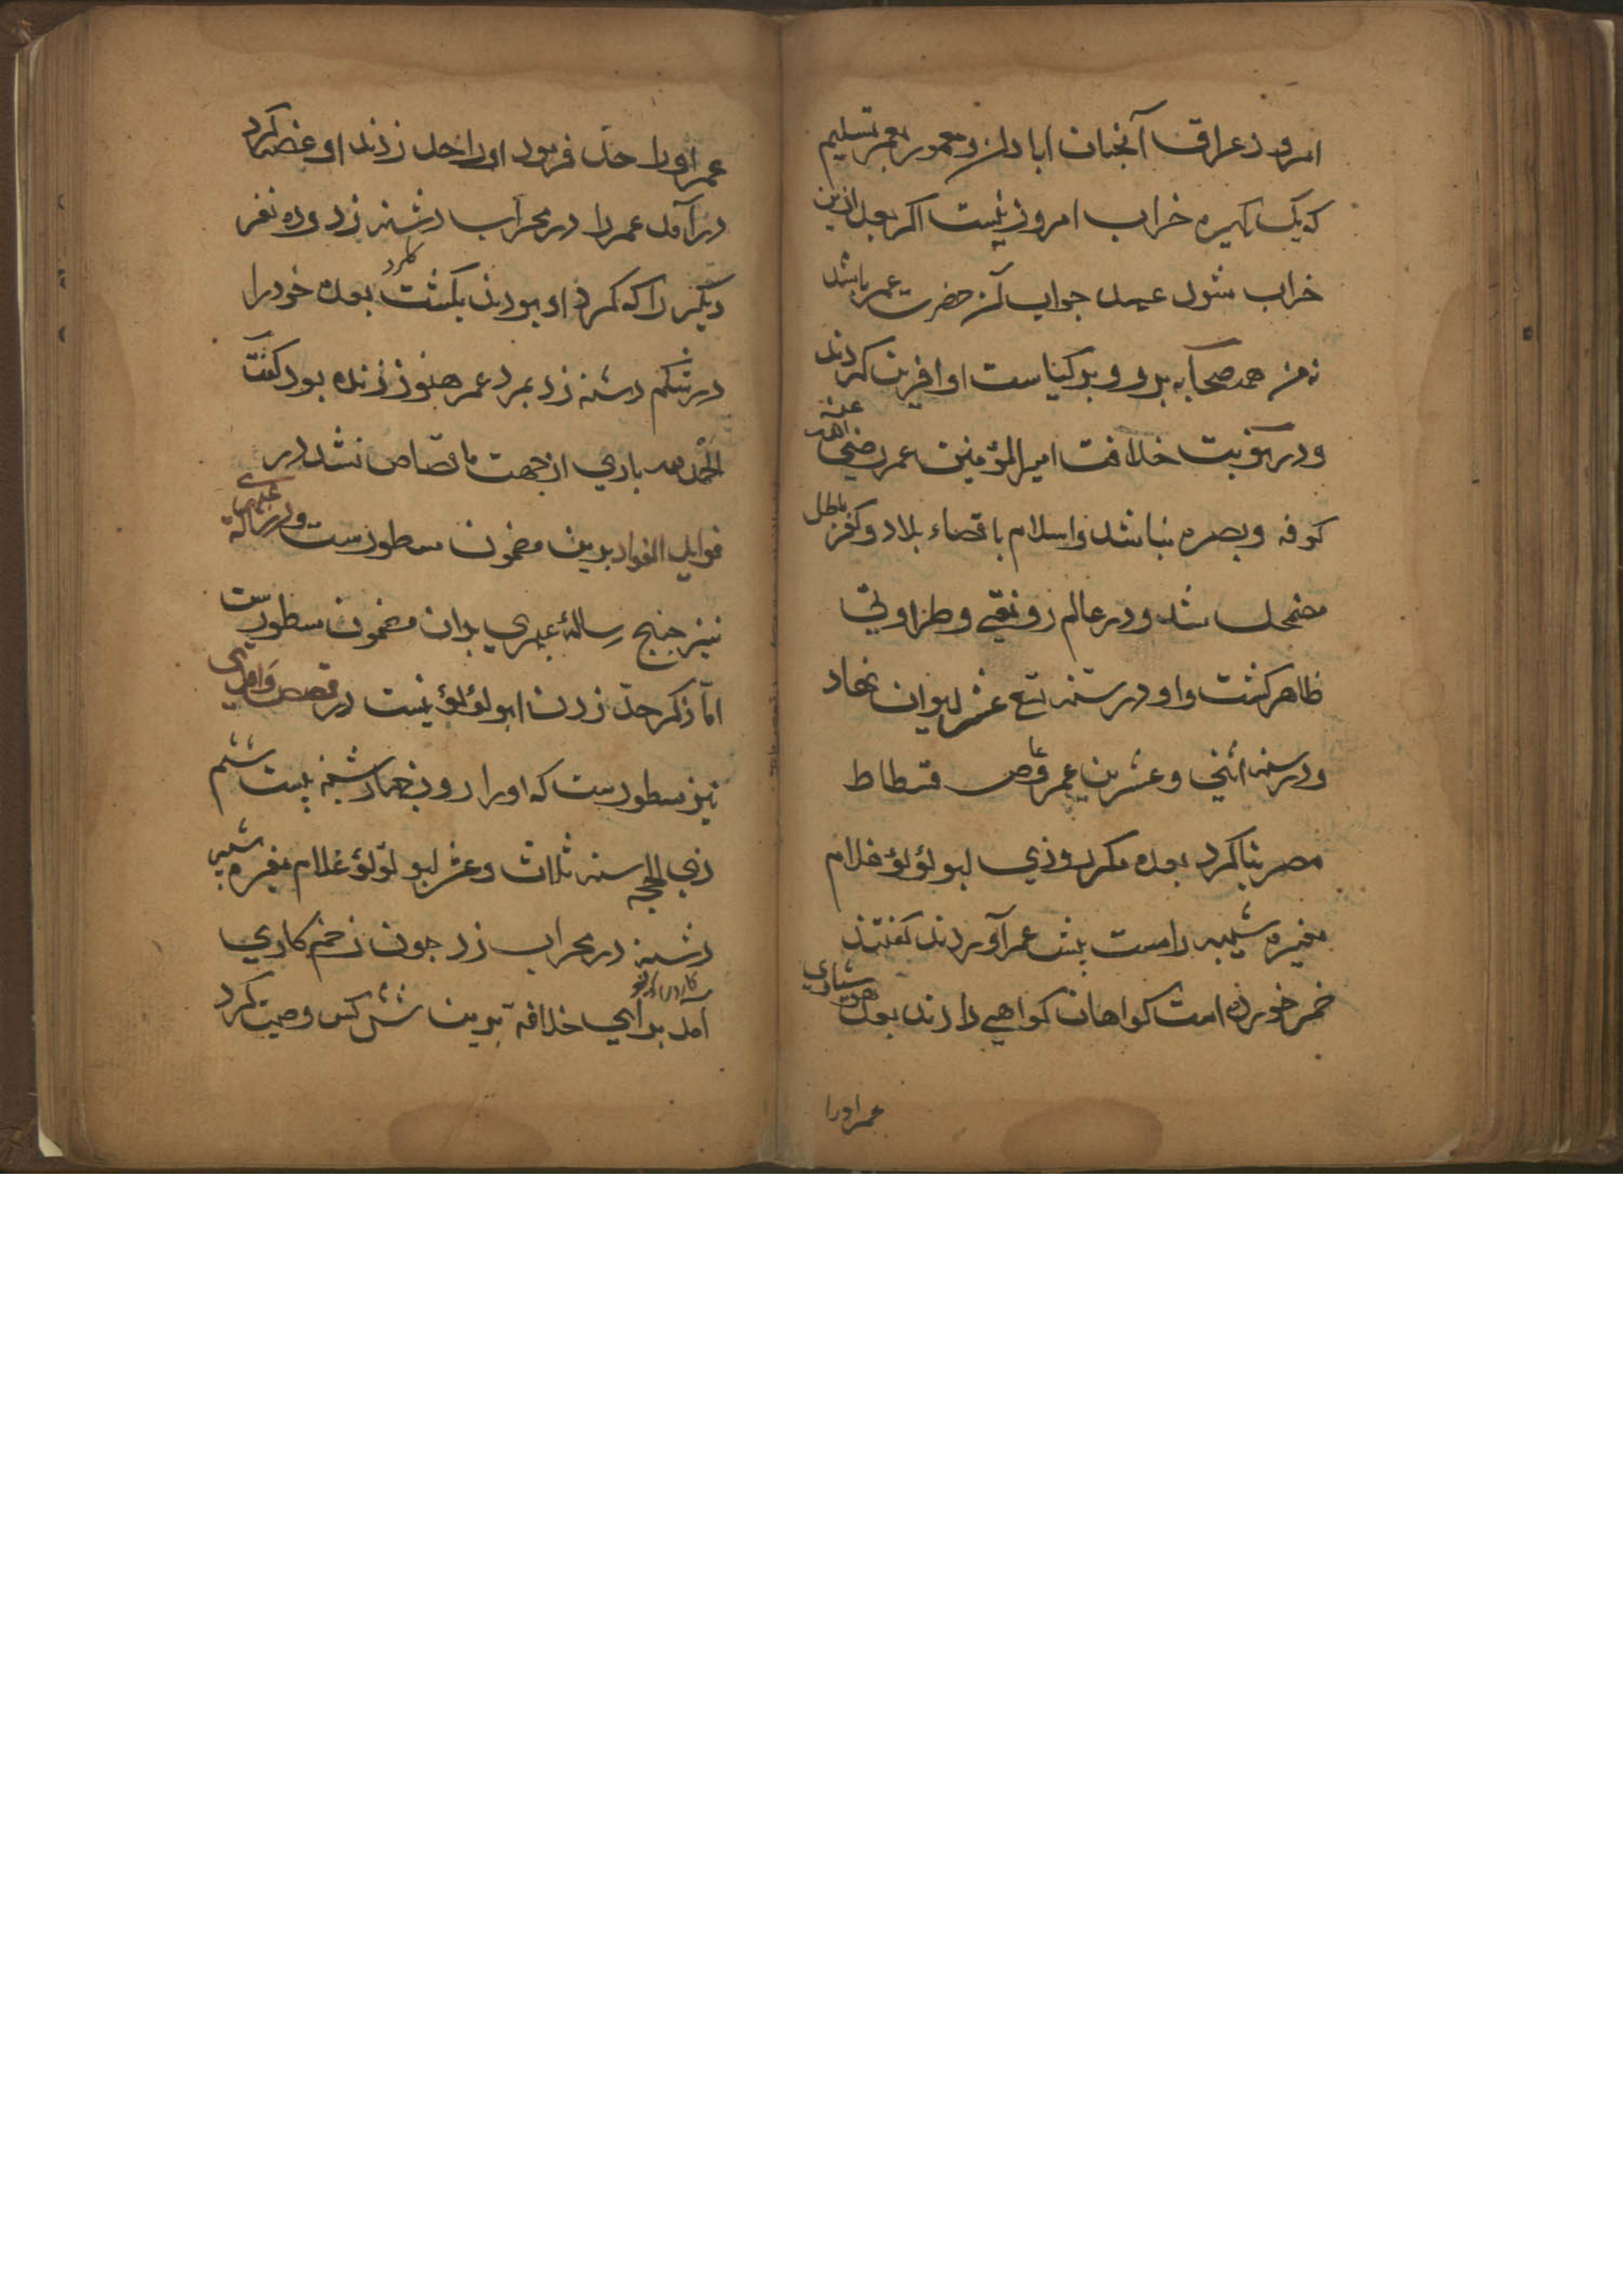 امروز عراق آنچنان ابادان و معمور بعمر تسلیم
که یک خراب امروز نیست اکر بعد ازین
خراب شود عهد جواب آن حضرت عمر باشد
نه من همه صحابه برو و بر کیاست او افرین کردند
و در نوبت خلافت امیر المؤمنین عمر رضی الله عنه
کوفه و بصره بنا شد و اسلام باقصاء بلاد و کفر باطل
مضمحل شد و در عالم رونقی و طراوتی
ظاهر کشت و او در سنه تسع عشر دیوان نهاد
و در سنه اثنی و عشرین عمر و عاص فسطاط
مصر بنا کرد بعده مکر روزی ابو لؤلؤ غلام
مغیره شیبه را مست پیش عمر آوردند کفتند
خمر خورده است کواهان کواهی دادند بعد هشیاری
عمر اورا
عمر اورا حد فرمود اورا حد زدند او غصه کرد
در آمد عمر را در محراب دشنه زد و ده نفر
دیکر را که کرد او بودند بکشت بعده خودرا
در شکم دشنه زد بمرد عمر هنوز زنده بود کفت
الحمد لله باری از جهت ما قصاص نشد در
فواید الفواد بدین مضمون مسطورست و در رسالهٔ
نیز رسالهٔ عبری بدان مضمون مسطورست
اما ذکر حد زدن ابو لؤلؤ نیست در قصص
نیز مسطورست که اورا روز چهارشنبه بیست ششم
ذی الحجه سنه ثلاث و عشر ابو لؤلؤ غلام مغیره شیبه
دشنه در محراب زد چون زخم کاری
آمد برای خلافة بدین شش کس وصیت کرد